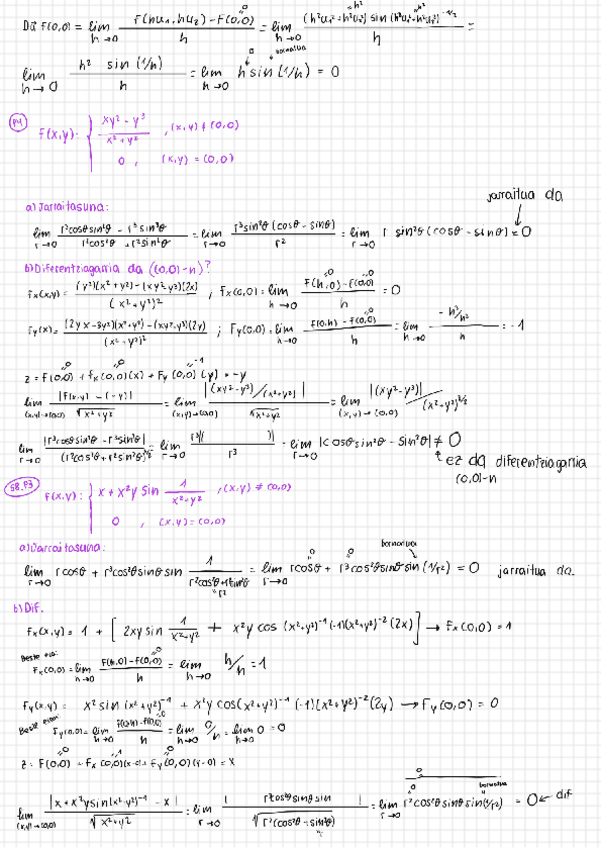 Da f(0,0) = lim h→0 (f(hu₁,hu₂) - f(0,0))/h = lim h→0 ((h²u₁²+h²u₂²) sin (h²u₁²+h²u₂²)^(-1/2))/h =
lim h→0 (h² sin(1/h))/h = lim h→0 h sin(1/h) = 0
P4 f(x,y): { (xy² - y³)/(x² + y²) , (x,y) ≠ (0,0)
0 , (x,y) = (0,0)
jarraitua da
a) Jarraitasuna:
lim r→0 (r³cosθsin²θ - r³sin³θ)/(r²cos²θ + r²sin²θ) = lim r→0 (r³sin²θ(cosθ - sinθ))/r² = lim r→0 r sin²θ(cosθ - sinθ) = 0
b) Diferentziagarria da (0,0)-n?
fx(x,y) = ((y²)(x²+y²) - (xy²-y³)(2x))/(x²+y²)² ; fx(0,0) = lim h→0 (f(h,0) - f(0,0))/h = 0
fy(x) = ((2yx-3y²)(x²+y²) - (xy²-y³)(2y))/(x²+y²)² ; fy(0,0) = lim h→0 (f(0,h) - f(0,0))/h = lim h→0 (-h³/h²)/h = -1
z = f(0,0) + fx(0,0)(x) + fy(0,0)(y) = -y
lim (x,y)→(0,0) |f(x,y) - (-y)|/√(x²+y²) = lim (x,y)→(0,0) |(xy²-y³)/(x²+y²)|/√(x²+y²) = lim (x,y)→(0,0) |(xy²-y³)|/(x²+y²)^(3/2)
lim r→0 |r³cosθsin²θ - r³sin³θ|/(r²cos²θ + r²sin²θ)^(3/2) = lim r→0 r³|( )|/r³ = lim r→0 |cosθsin²θ - sin³θ| ≠ 0
ez da diferentziagarria
(0,0)-n
f(x,y): { x + x²y sin 1/(x²+y²) , (x,y) ≠ (0,0)
0 , (x,y) = (0,0)
a) Jarraitasuna:
lim r→0 rcosθ + r³cos²θsinθ sin 1/(r²cos²θ + r²sin²θ) = lim r→0 rcosθ + r³cos²θsinθ sin(1/r²) = 0 jarraitua da.
b) Dif.
fx(x,y) = 1 + [2xy sin 1/(x²+y²) + x²y cos (x²+y²)⁻¹(-1)(x²+y²)⁻²(2x)] → fx(0,0) = 1
Beste era:
fx(0,0) = lim h→0 (f(h,0) - f(0,0))/h = lim h→0 h/h = 1
fy(x,y) = x² sin (x²+y²)⁻¹ + x²y cos(x²+y²)⁻¹ (-1)(x²+y²)⁻²(2y) → fy(0,0) = 0
fy(0,0) = lim h→0 (f(0,h) - f(0,0))/h = lim h→0 0/h = lim h→0 0 = 0
z = f(0,0) + fx(0,0)(x-0) + fy(0,0)(y-0) = x
lim (x,y)→(0,0) |x + x²y sin(x²+y²)⁻¹ - x|/√(x²+y²) = lim r→0 | r³cos²θsinθ sin |/√(r²(cos²θ + sin²θ)) = lim r→0 r²cos²θ sinθ sin(1/r²) = 0 ← dif